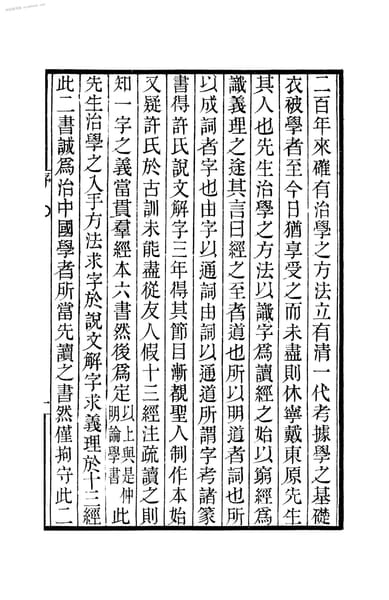 二百年來確有治學之方法立有清一代考據學之基礎
衣被學者至今日猶享受之而未盡則休寧戴東原先生
其人也先生治學之方法以識字爲讀經之始以窮經爲
識義理之途其言曰經之至者道也所以明道者詞也所
以成詞者字也由字以通詞由詞以通道所謂字考諸篆
書得許氏說文解字三年得其節目漸覩聖人制作本始
又疑許氏於古訓未能盡從友人假十三經注疏讀之則
知一字之義當貫羣經本六書然後爲定以上與是仲明論學書此
先生治學之入手方法求字於說文解字求義理於十三經
此二書誠爲治中國學者所當先讀之書然僅拘守此二
序